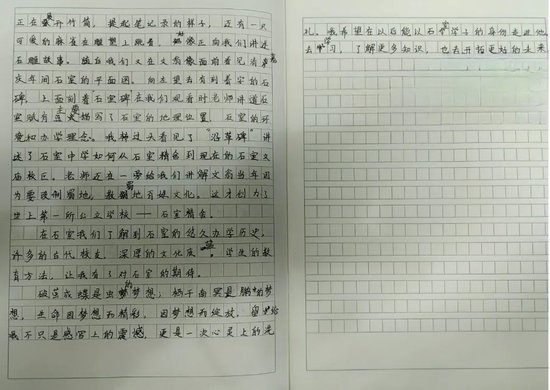 正在展开竹简，提起笔记录的样子，还有一只
可爱的麻雀在雕塑上跳着，好像正向我们讲述
石雕故事。随后我们又在文翁像面前看见有嘉
庆年间石室的平面图。向左望去有刻着字的石
碑，上面刻着石室碑在我们观看时老师讲道石
室赋有五大主要描写了石室的地理位置，石室的环
爱和办学理念。我转过头看见了“沿革碑”讲
述了石室中学如何从石室精舍到现在的石室文
庙校区。老师还在一旁给我们讲解文翁当年因
为要改制蜀地，教蜀地有娱文化。这才创办了
世上第一所公文学校——石室精舍。
在石室我们了解到石室的悠久办学历史，
许多的古代校友，深厚的文化底蕴，学生的教
育方法，让我有了对石室的期待。
破茧成蝶是虫的梦想，鲲于南冥是鹏的梦
想，生命因梦想而精彩，因梦想而绽放，留给
我不只是感官上的震撼，更是一次心灵上的洗
礼。我希望在以后能以石室学子的身份走进他，
去学习，了解更多知识，也去开拓更好的未来